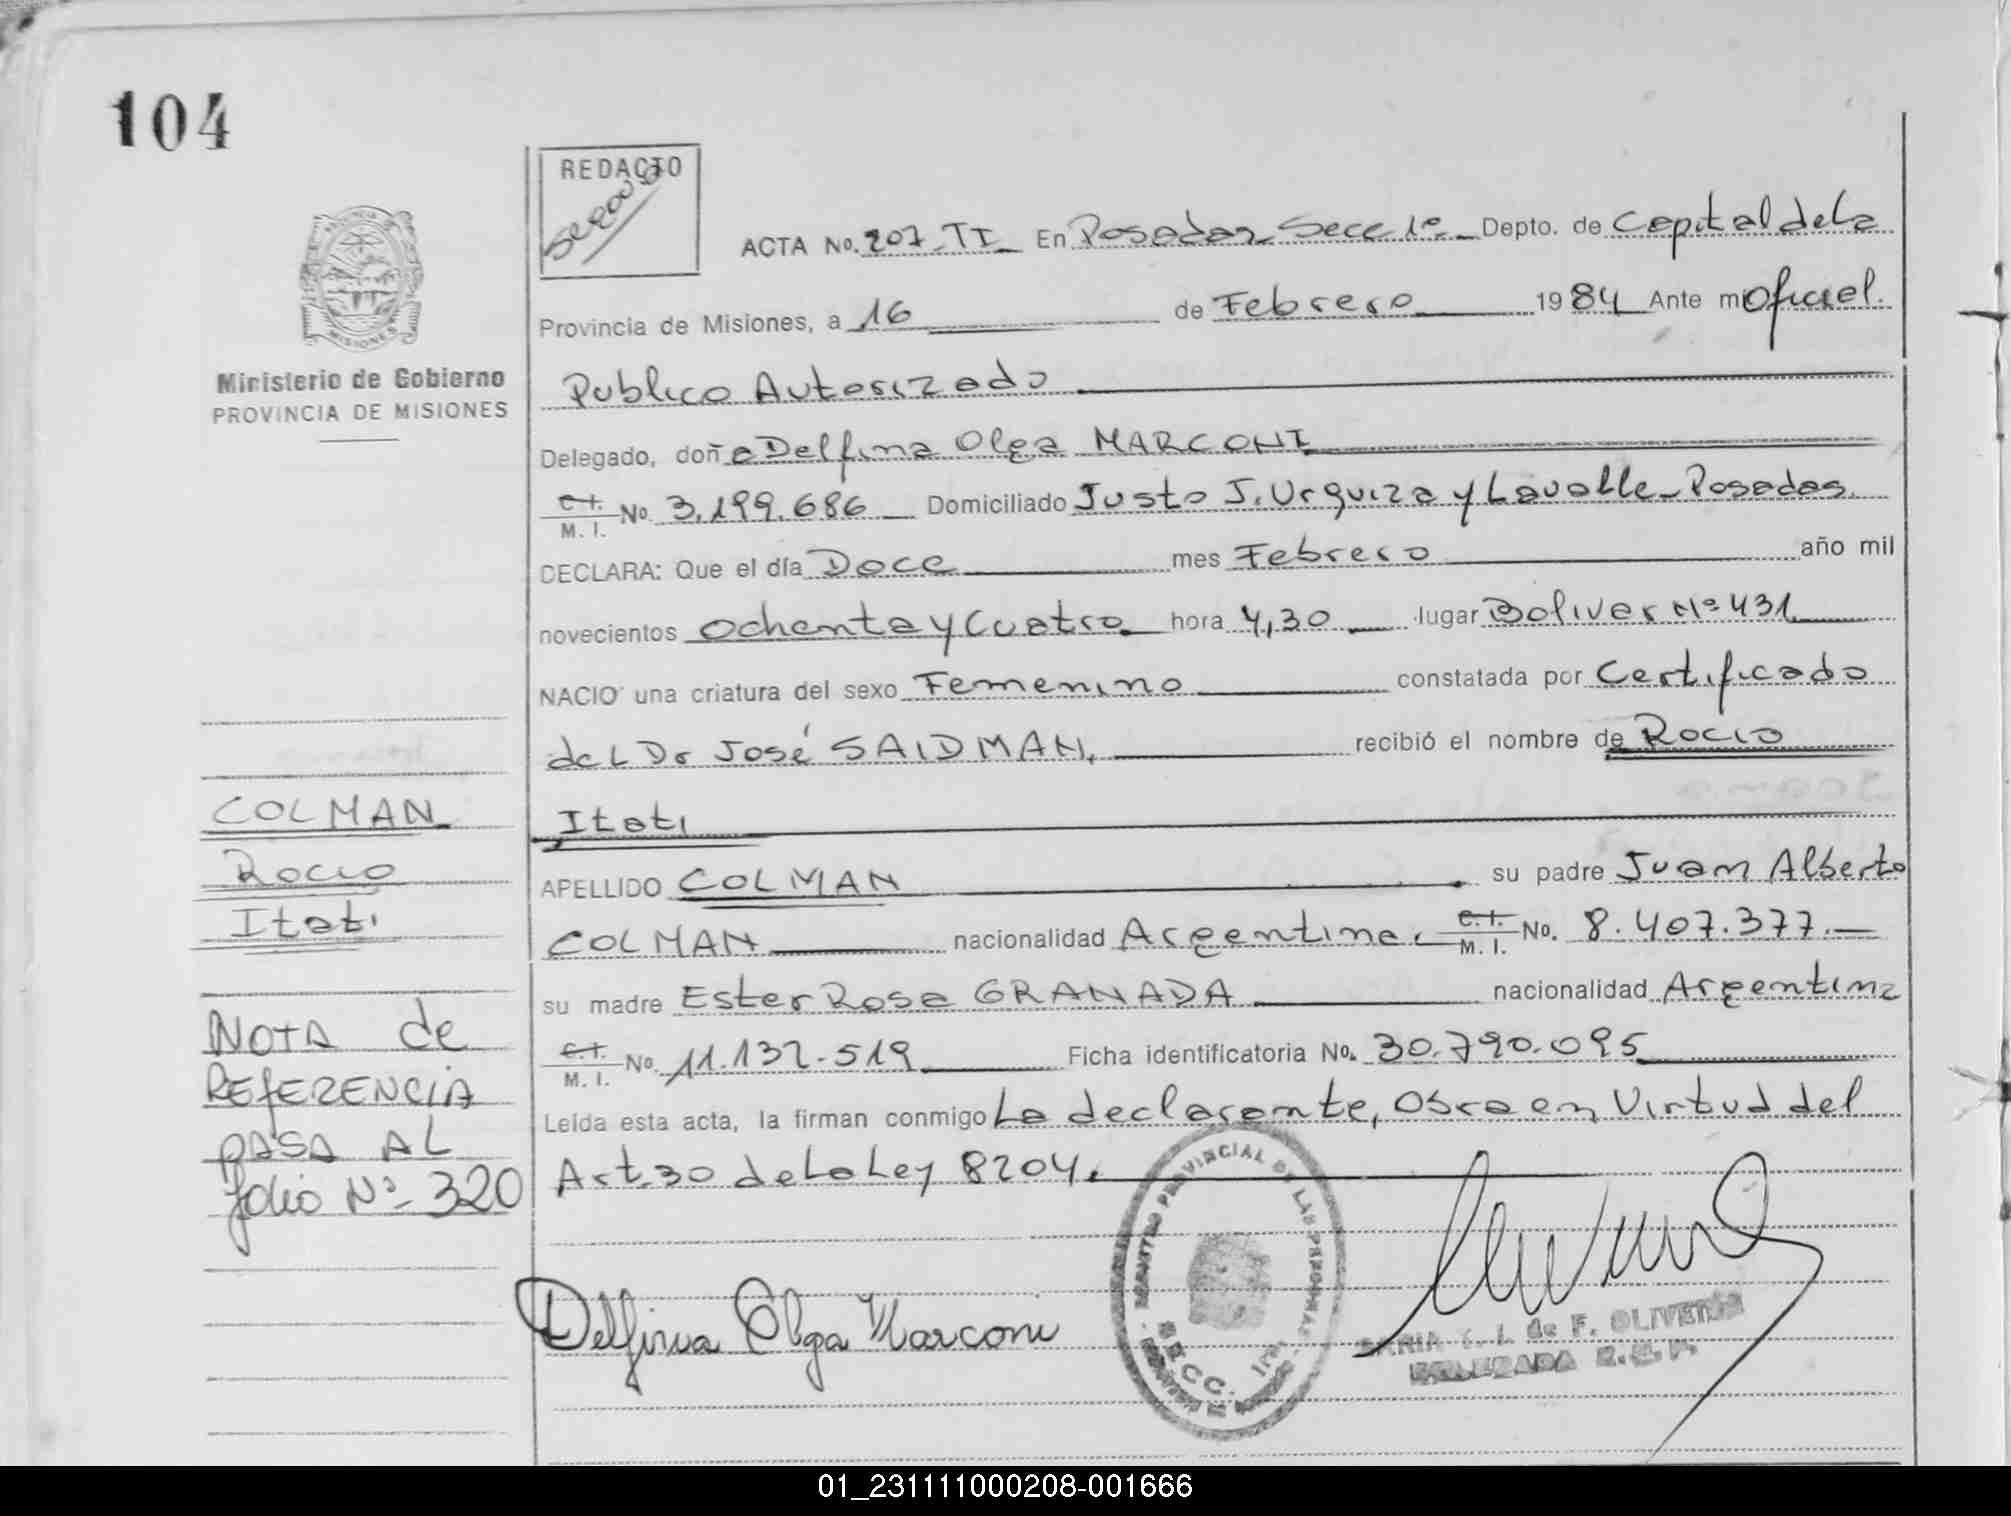 104
REDACTO
PROVINCIA DE
MISIONES
Ministerio de Gobierno
PROVINCIA DE MISIONES
ACTA No. 207-TI En Posadas Secc 1º Depto. de Capital de la
Provincia de Misiones, a 16 de Febrero 1984 Ante mi Oficial
Publico Autorizado
Delegado, doña Delfina Olga MARCONI
C.I. M. I. No. 3.199.686 Domiciliado Justo J. Urquiza y Lavalle - Posadas
DECLARA: Que el día Doce mes Febrero año mil
novecientos Ochenta y Cuatro hora 4,30 lugar Bolivar Nº 431
NACIO una criatura del sexo Femenino constatada por Certificado
del Dr José SAIDMAN, recibió el nombre de Rocio
Itati
APELLIDO COLMAN su padre Juan Alberto
COLMAN nacionalidad Argentina. C.I. M. I. No. 8.407.377.-
su madre Ester Rosa GRANADA nacionalidad Argentina
C.I. M. I. No. 11.132.519 Ficha identificatoria No. 30.790.095
Leida esta acta, la firman conmigo La declarante, Obra en Virtud del
Art. 30 de La Ley 8204.
COLMAN
Rocio
Itati
NOTA de
REFERENCIA
PASA AL
folio Nº 320
REGISTRO PROVINCIAL DE LAS PERSONAS
SECC.
Delfina Olga Marconi
de F. OLIVERA
DELEGADA R.C.P.
01_231111000208-001666